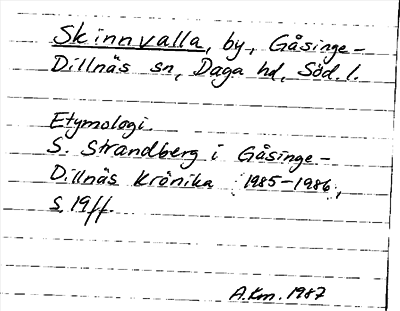 Skinnvalla, by, Gåsinge-
Dillnäs sn, Daga hd, Söd. l.
Etymologi.
S. Strandberg i Gåsinge-
Dillnäs Krönika 1985-1986,
s. 19ff.
A.Km. 1987